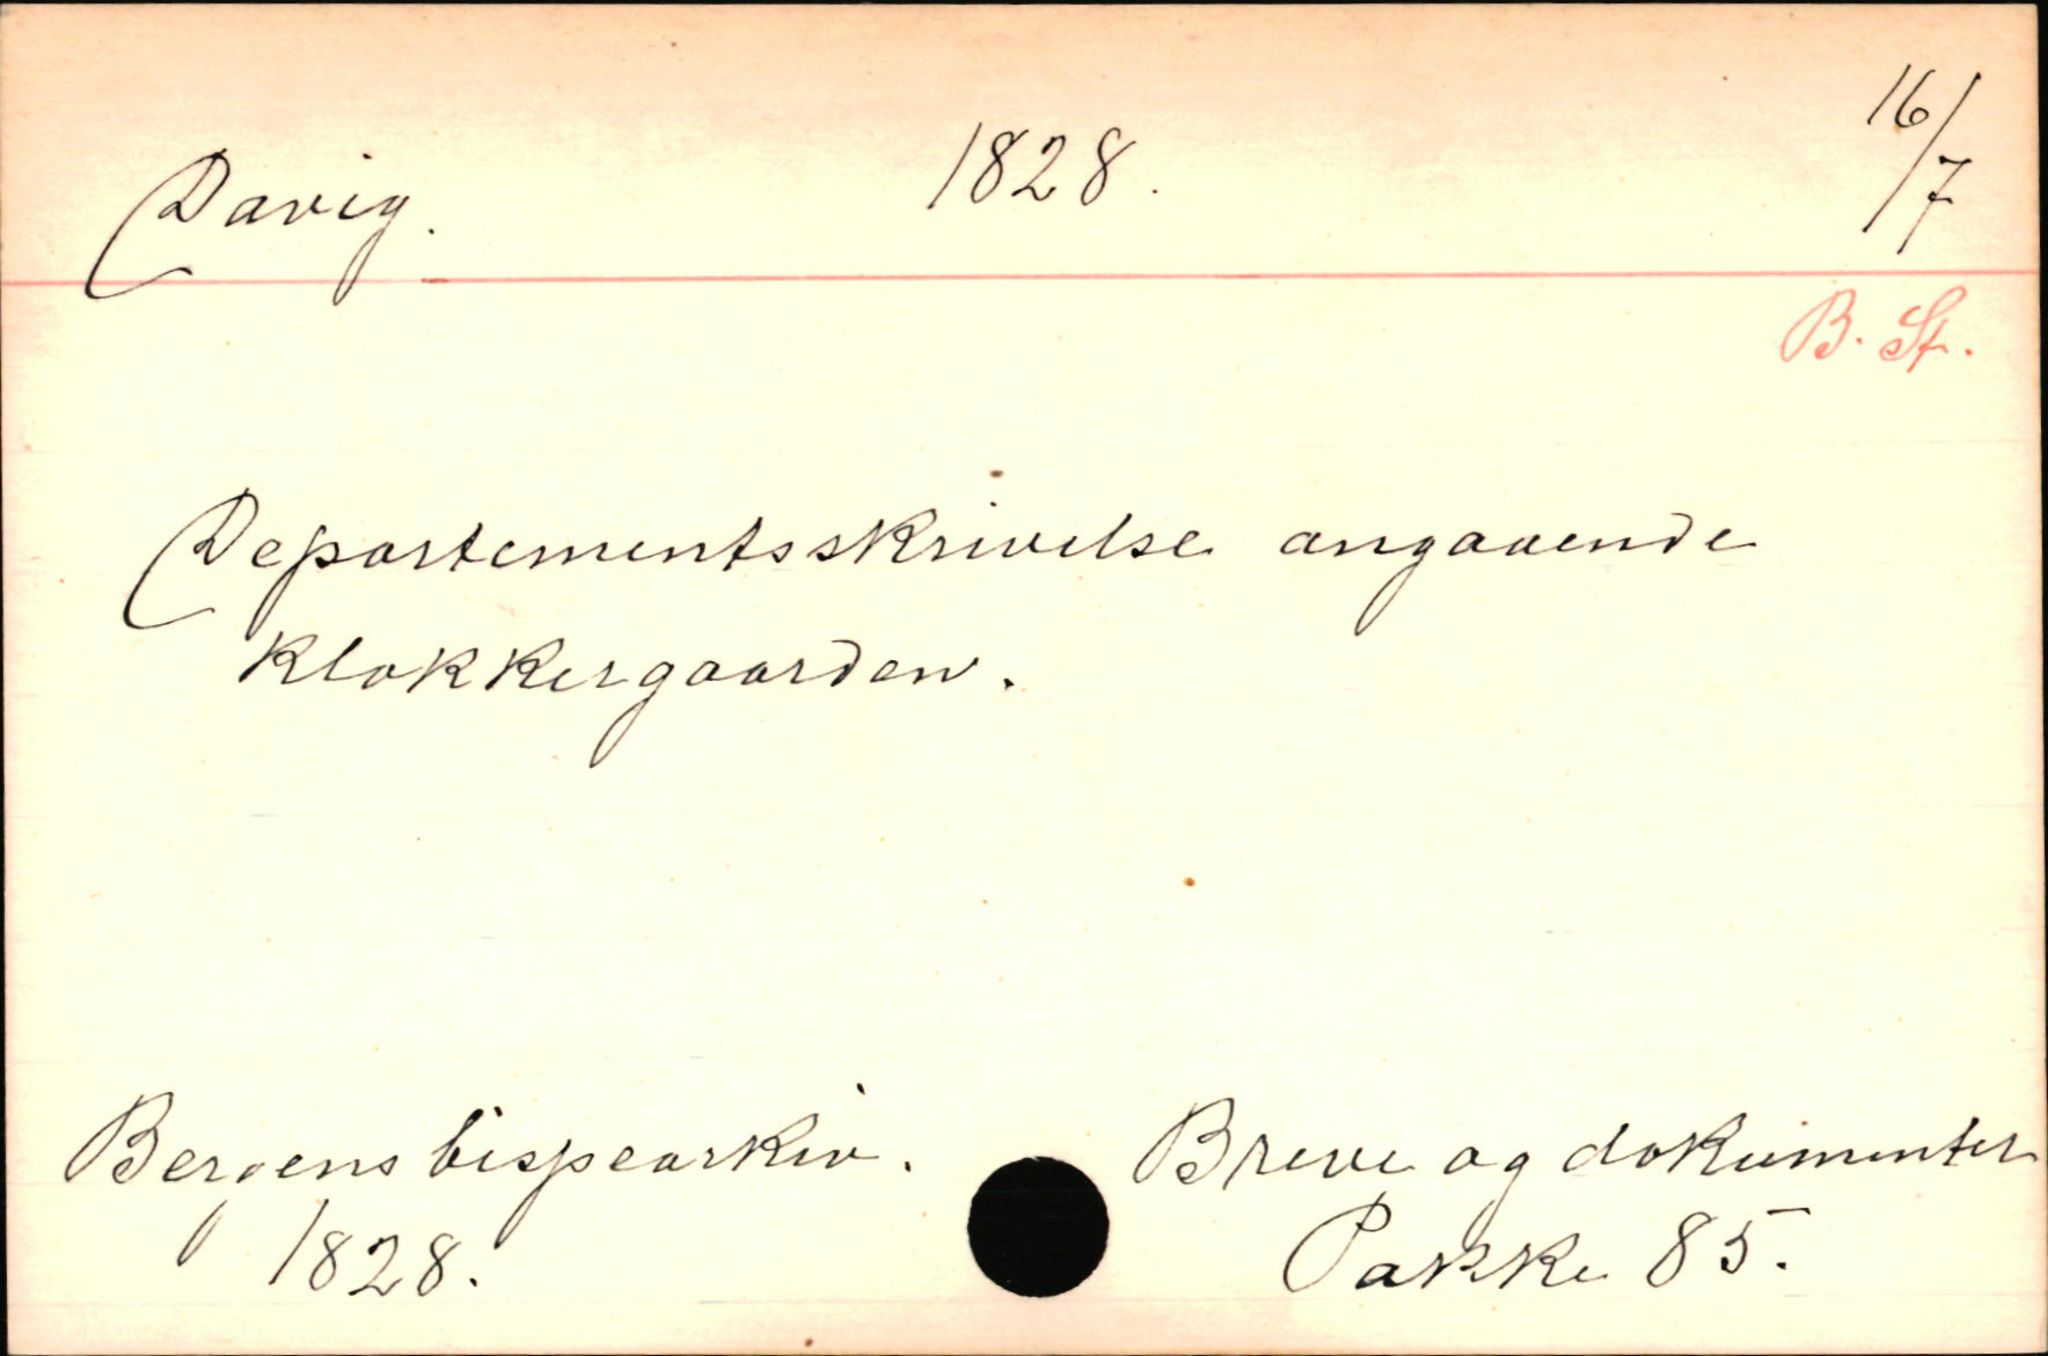 Davig. 1828. 16/7
B. St.
Departementsskrivelse angaaende
klokkergaarden.
Bergens bispearkiv. Breve og dokumenter
1828. Pakke 85.